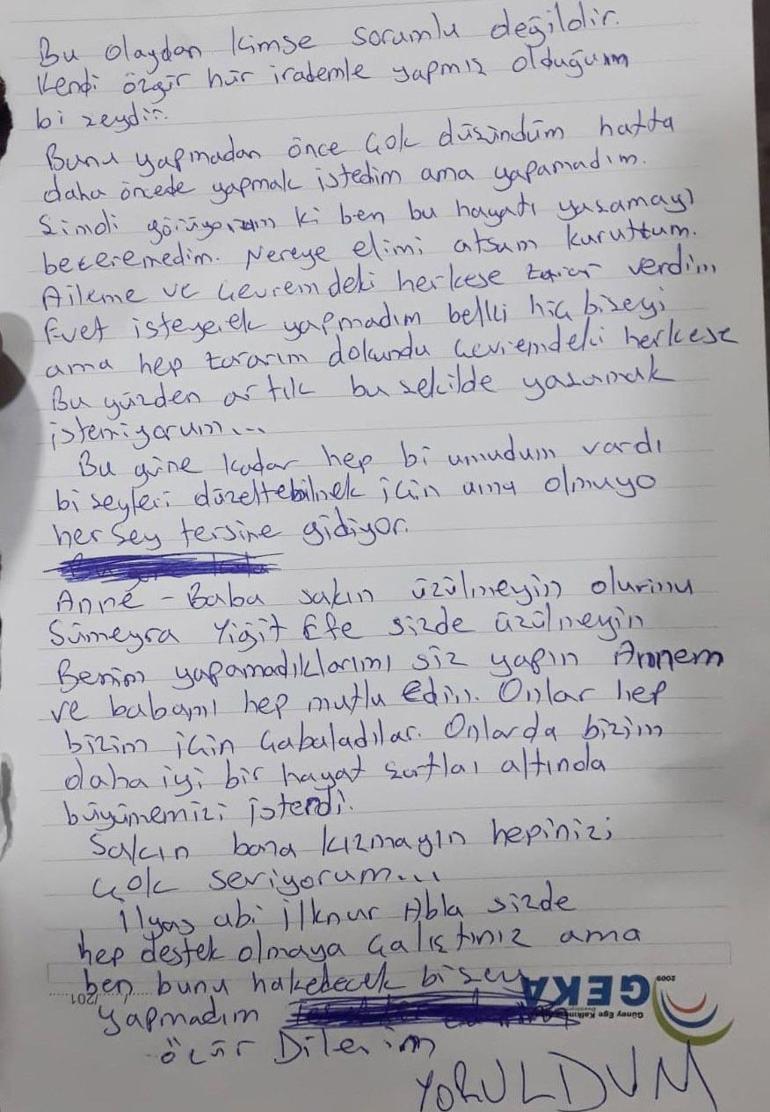 Bu olaydan kimse sorumlu değildir.
Kendi özgür hür irademle yapmış olduğum
bi şeydir.
Bunu yapmadan önce çok düşündüm hatta
daha öncede yapmak istedim ama yapamadım.
Şimdi görüyorum ki ben bu hayatı yaşamayı
beceremedim. Nereye elimi atsam kuruttum.
Aileme ve çevremdeki herkese zarar verdim
Evet isteyerek yapmadım belki hiç bişeyi
ama hep zararım dokundu çevremdeki herkese
Bu yüzden artık bu şekilde yaşamak
istemiyorum...
Bu güne kadar hep bi umudum vardı
bişeyleri düzeltebilmek için ama olmuyo
herşey tersine gidiyor.
Anne - Baba sakın üzülmeyin olurmu
Sümeyra Yiğit Efe sizde üzülmeyin
Benim yapamadıklarımı siz yapın Annem
ve babamı hep mutlu edin. Onlar hep
bizim için çabaladılar. Onlarda bizim
daha iyi bir hayat şartları altında
büyümemizi isterdi.
Sakın bana kızmayın hepinizi
çok seviyorum...
İlyas abi İlknur Abla sizde
hep destek olmaya çalıştınız ama
ben bunu hakedecek bişey
yapmadım
özür Dilerim
YORULDUM
GEKA
2009
/201